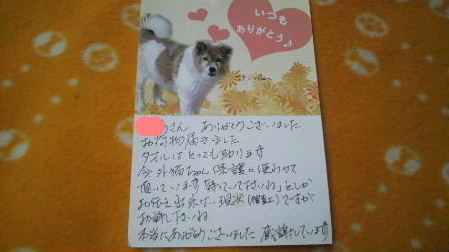 いつも
ありがとう♪
さん ありがとうございました。
お荷物届きました
タオルはとっても助ります
今外猫ちゃん保護に使わせて
頂いています 待っていて下さいね」としか
お伝え出来ない現状ですが
お許し下さいね
本当にありがとうございました 感謝しています